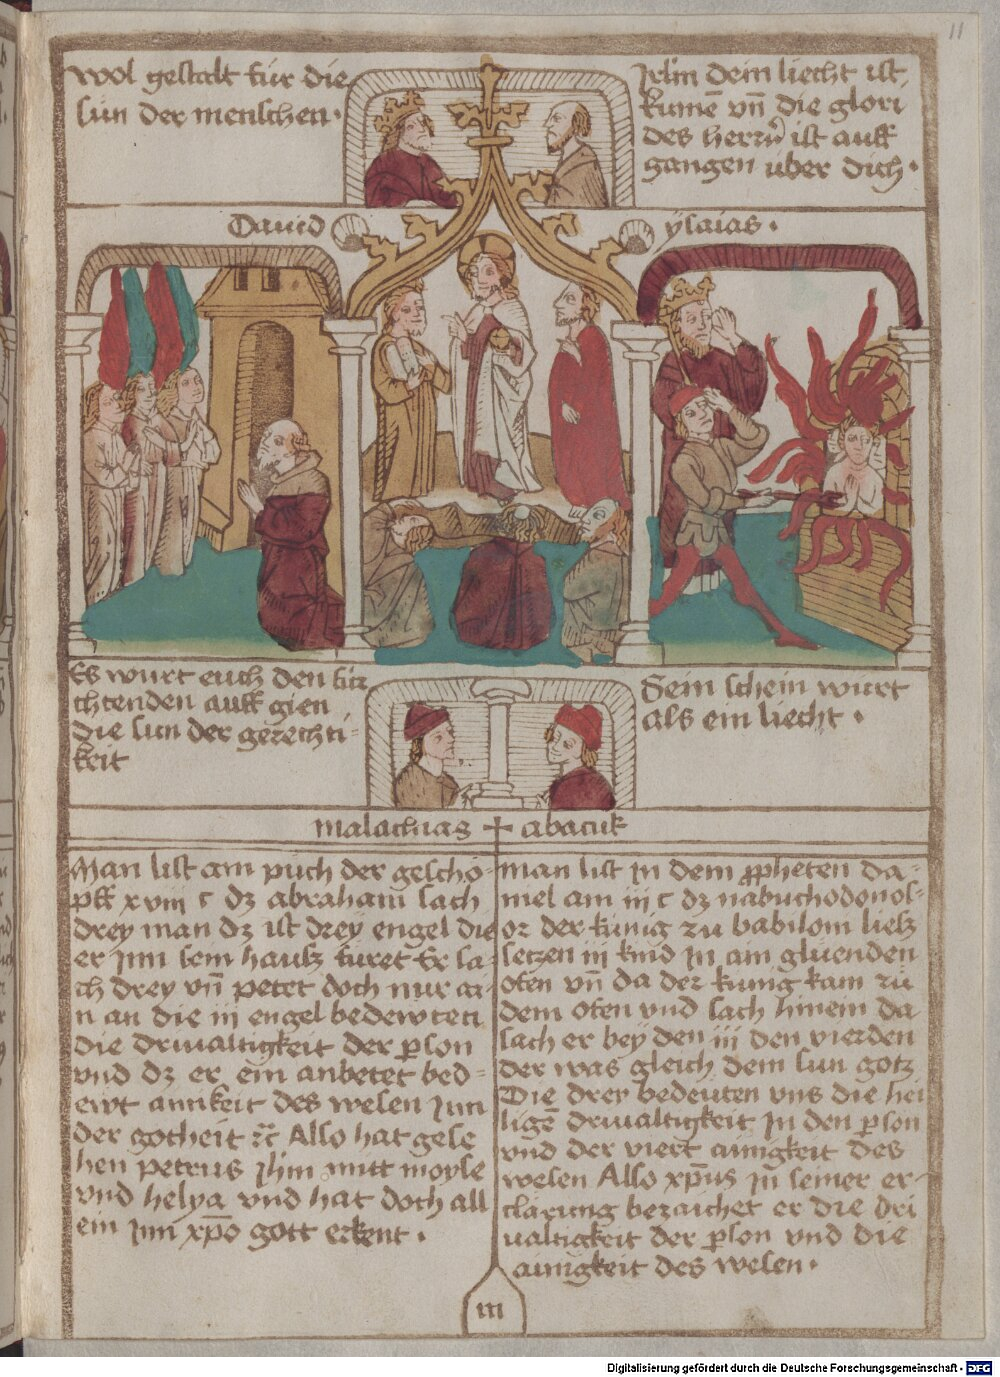 11
wol gestalt für die
sün der menschen·
Jrlm̄ dein liecht ist
kumē vn̄ die glori
des herrn̄ ist auff
gangen über dich·
Dauid
ysaias·
Es würt euch den für
chtenden auff gien
die sun der gerechti-
keit
Sein schein würt
als ein liecht·
malachias + abacuk
Man list am puch der geschö-
pff xviii c dz abraham sach
drey man dz ist drey engel die
er jnn sein hausz füret Er sa-
ch drey vn̄ petet doch nur ai-
n an die iij engel bedewten
die driualtigkeit der p̲son
vnd dz er ein anbetet bed-
ewt ainikeit des wesen jnn
der gotheit ⁊c̄ Also hat gese
hen petrus jh̄m mitt moyse
vnd helya vnd hat doch all
ein jnn xp̄o gott erkent·
man list jn dem ꝓpheten da-
niel am iij c dz nabuchodonos-
or der künig zu babilom liesz
setzen iij kind jn ain glüenden
ofen vn̄ da der kunig kam zu
dem ofen vnd sach hinein da
sach er bey den iij den vierden
der was gleich dem sun gotz
Die drey bedeuten vns die hei
ligē driualtigkeit jn den p̲son
vnd der viert ainigkeit des
wesen Also xp̄us jn seiner er-
clarung bezaichet er die dri
ualtigkeit der p̲son vnd die
ainigkeit des wesen·
m
Digitalisierung gefördert durch die Deutsche Forschungsgemeinschaft - DFG